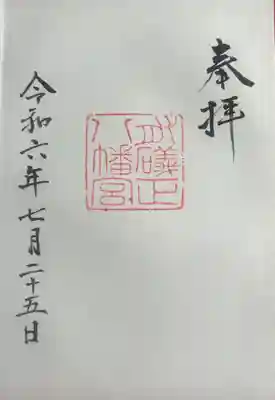 奉拝
礒正
八幡宮
令和六年七月二十五日